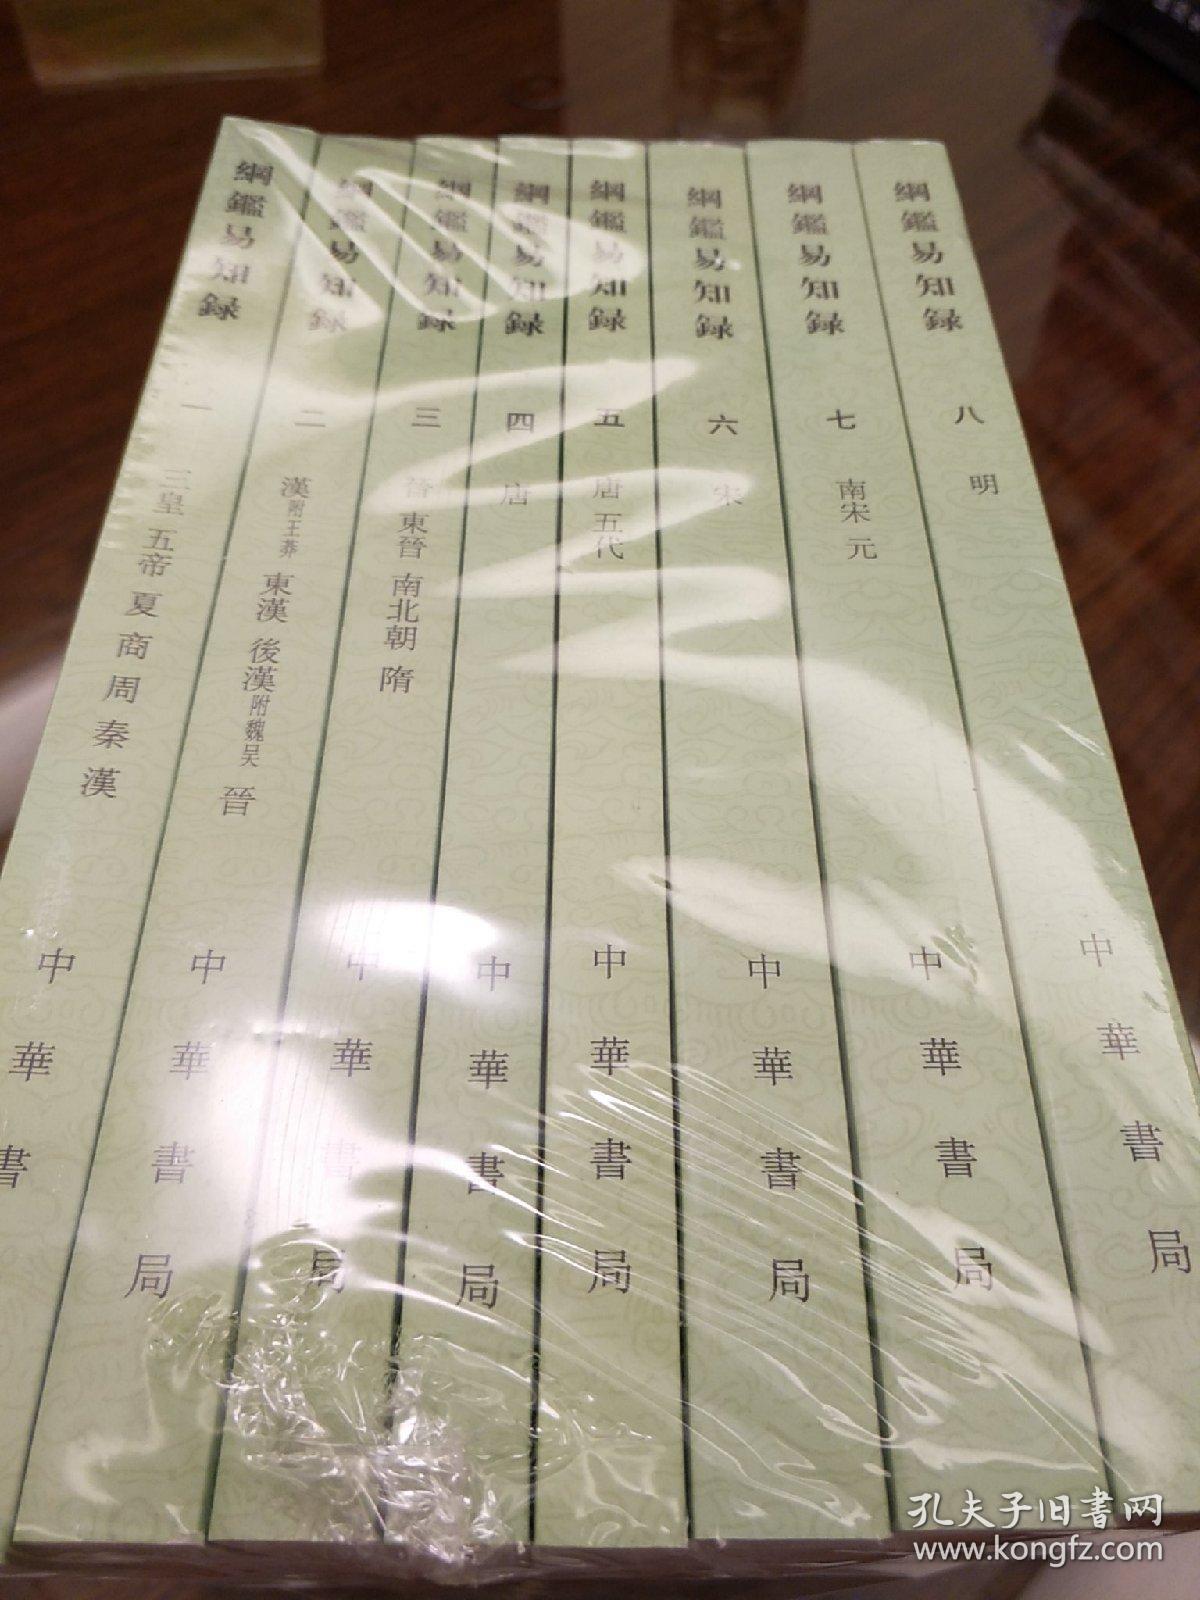 綱鑑易知録 一 三皇 五帝 夏 商 周 秦 漢 中華書
綱鑑易知録 二 漢附王莽 東漢 後漢附魏吴 晉 中華書局
綱鑑易知録 三 晉 東晉 南北朝 隋 中華書局
綱鑑易知録 四 唐 中華書局
綱鑑易知録 五 唐 五代 中華書局
綱鑑易知録 六 宋 中華書局
綱鑑易知録 七 南宋 元 中華書局
綱鑑易知録 八 明 中華書局
孔夫子旧書网
www.kongfz.com